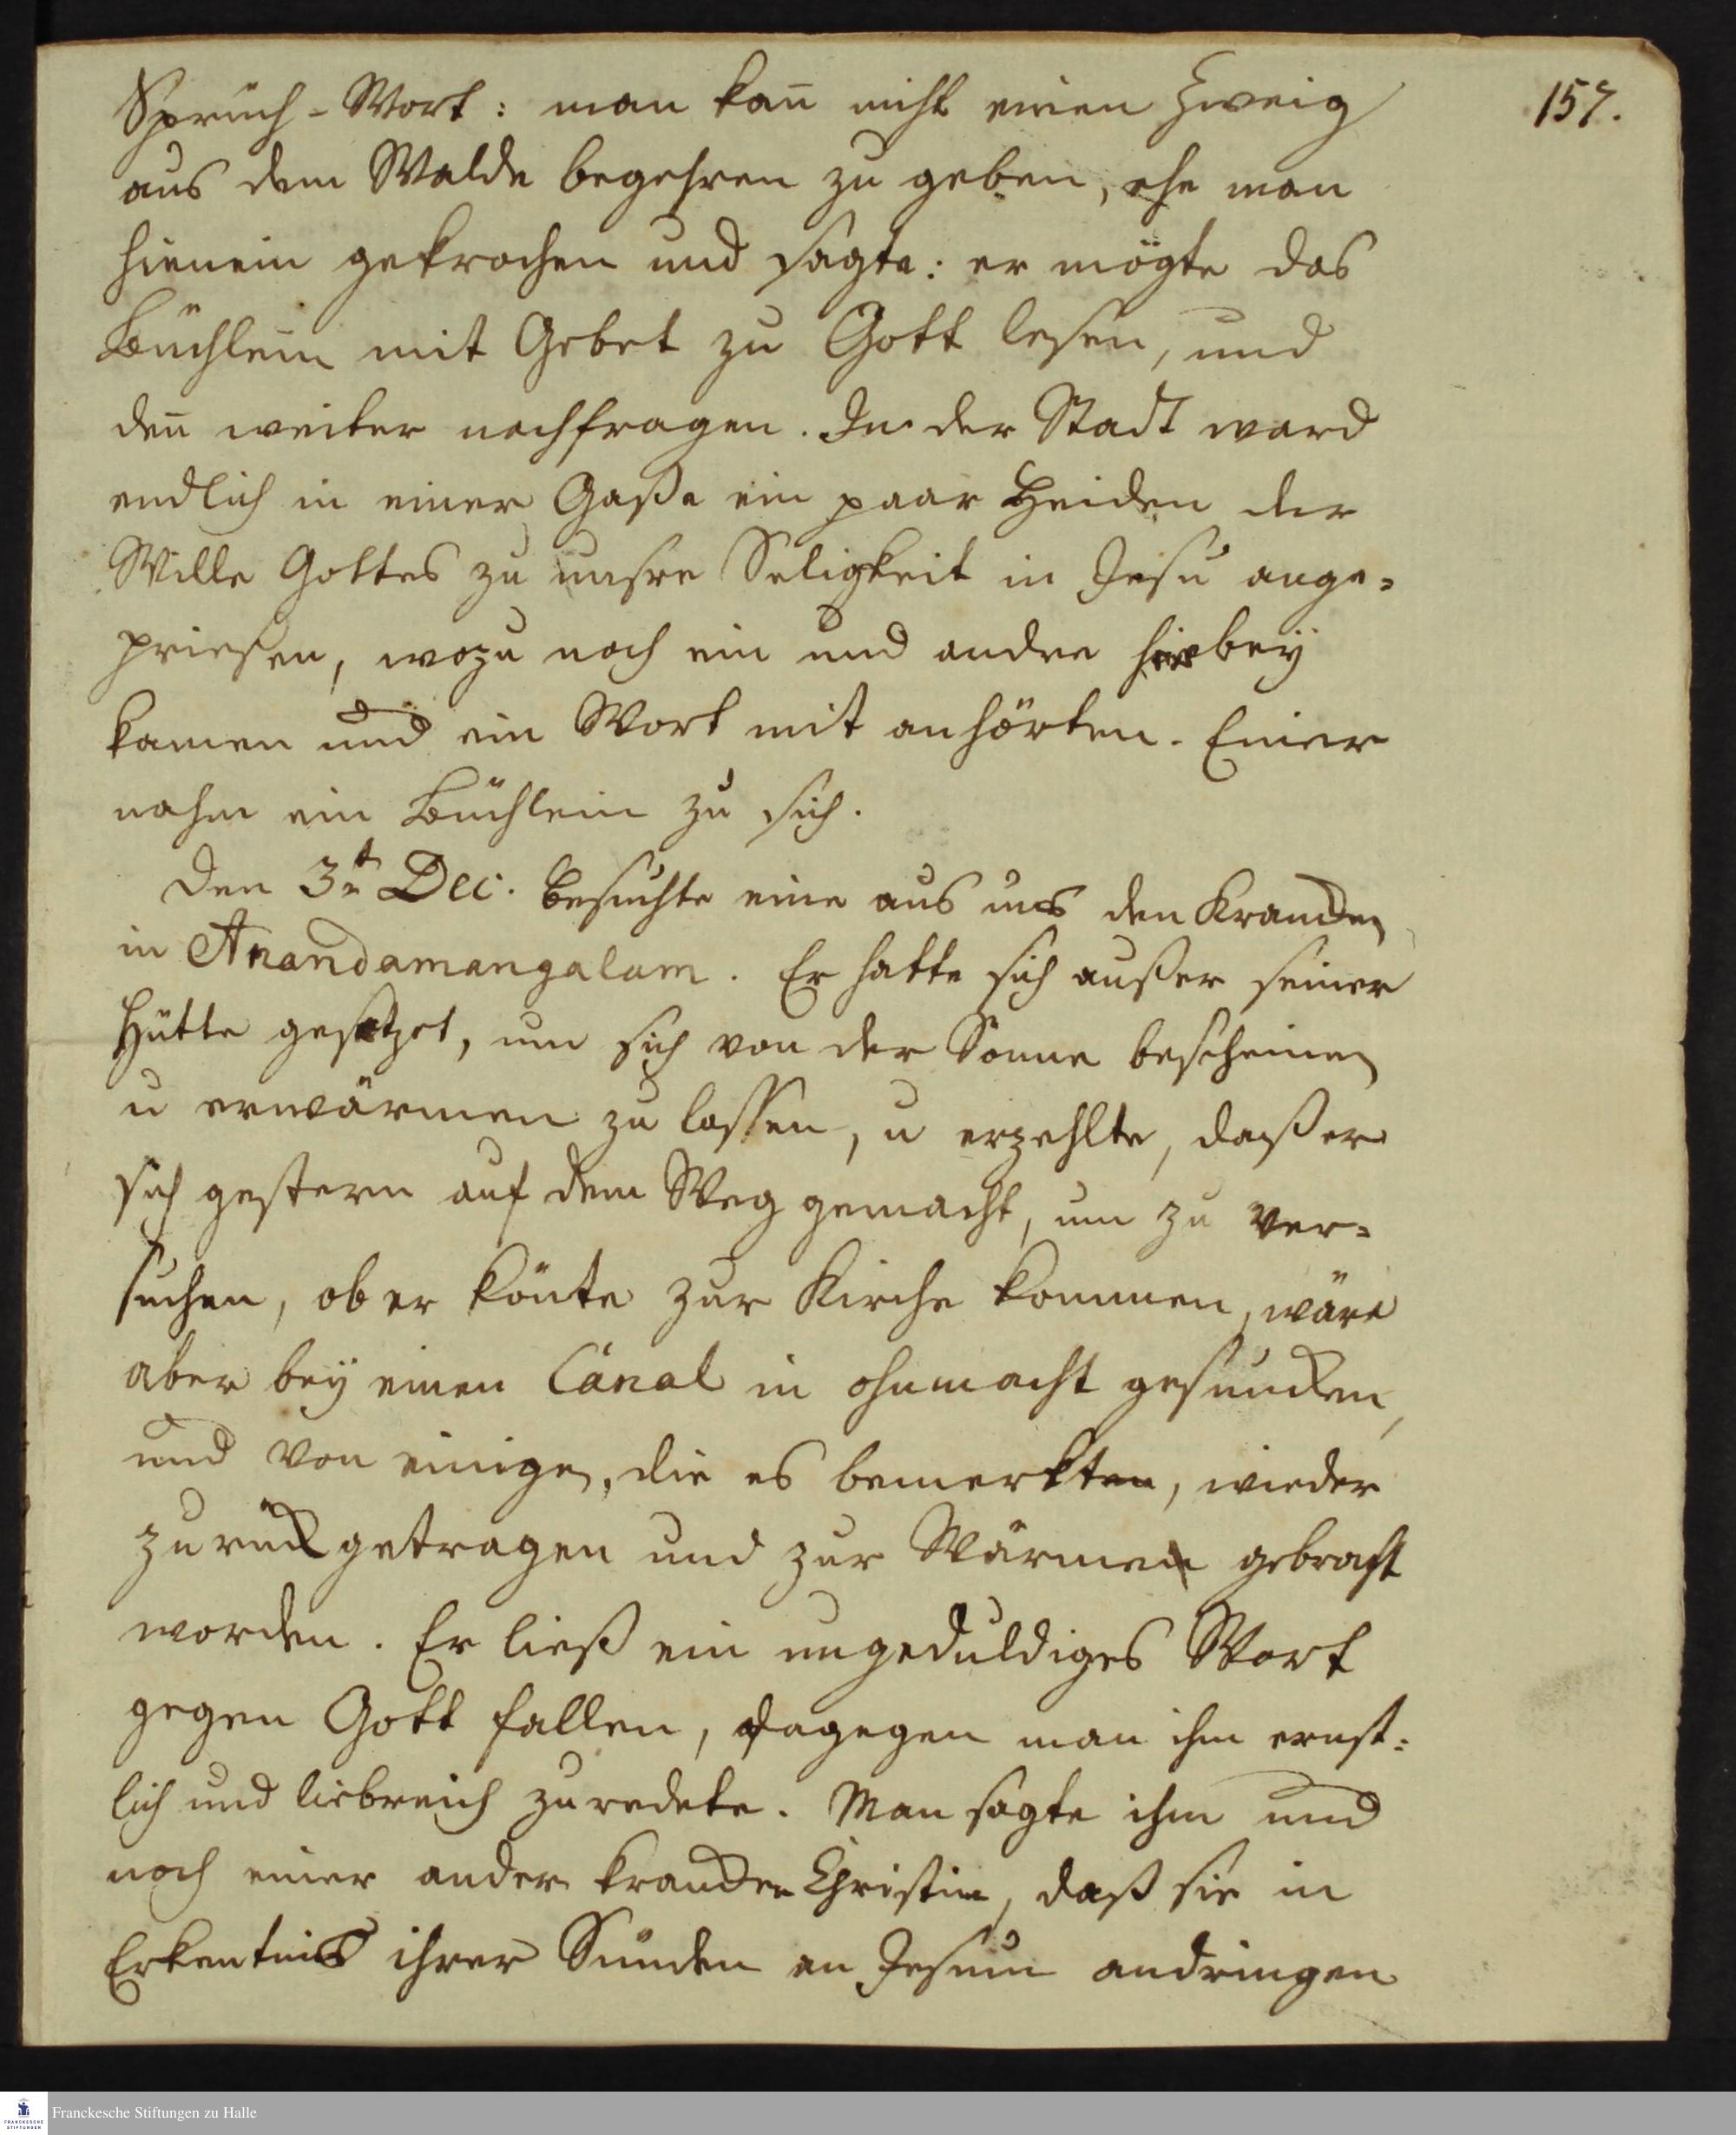 157.
Sprüch-Wort: man kan̄ nicht einen Zweig
aus dem Walde begehren zu geben, ehe man
hienein gekrochen und sagte: er mögte das
Büchlein mit Gebet zu Gott lesen, und
den̄ weiter nachfragen. In der Stadt ward
endlich in einer Gaße ein paar Heiden der
Wille Gottes zu unsre Seligkeit in Jesu ange=
priesen, wozu noch ein und andre hiebey
kamen und ein Wort mit anhörten. Einer
nahm ein Büchlein zu sich.
Den 3t Dec. besuchte eine aus uns den Krancken
in Anandamangalam. Er hatte sich außer seiner
Hütte gesetzet, um sich von der Sonne bescheinen
u erwärmen zu lassen, u erzehlte, daß er
sich gestern auf dem Weg gemacht, um zu ver=
suchen, ob er könte zur Kirche kommen, wäre
aber bey einen Canal in ohnmacht gesuncken,
und von einigen, die es bemerkten, wieder
zurück getragen und zur Wärmen gebracht
worden. Er ließ ein ungeduldiges Wort
gegen Gott fallen, dagegen man ihm ernst=
lich und liebreich zuredete. Man sagte ihm und
noch einer ander krancken Christin, daß sie in
Erkentnis ihrer Sünden an Jesum andringen
Franckesche Stiftungen zu Halle